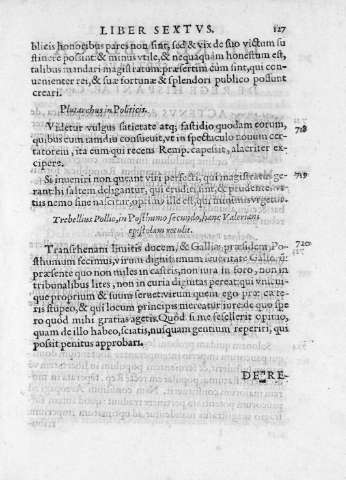 LIBER SEXTVS. 127
blicis honoribus pares non sint, sed & vix de suo victum su
stinere possint: & minus vtile, & nequaquam honestum est,
talibus mandari magistratum: præsertim cum sint, qui con-
uenienter rei, & suæ fortunæ & splendori publico possunt
creari.
Plutarchus in Politicis.
Videtur vulgus satietate atq; fastidio quodam eorum, 718
quibus cum tamdiu consueuit, vt in spectaculo nouum cer-
tatorem, ita eum qui recens Remp. capessit, alacriter ex-
cipere.
Si inueniri non queant viri perfecti, qui magistratus ge- 719
rant: hi saltem deligantur, qui eruditi sint, & prudentes. vi-
tiis nemo sine nascitur, optimus ille est, qui minimis vrgetur.
Trebellius Pollio, in Posthumo secundo, hanc Valeriani
epistolam retulit.
Transrhenani limitis ducem, & Galliæ præsidem Po- 720
sthumum fecimus, virum dignissimum seueritate Gallorū.
præsente quo non miles in castris, non iura in foro, non in
tribunalibus lites, non in curia dignitas pereat: qui vnicui-
que proprium & suum seruet: virum quem ego præ cæte-
ris stupeo, & qui locum principis mereatur iure: de quo spe
ro quòd mihi gratias agetis. Quòd si me fefellerit opinio,
quam de illo habeo, sciatis, nusquam gentium reperiri, qui
possit penitus approbari.
DE RE-